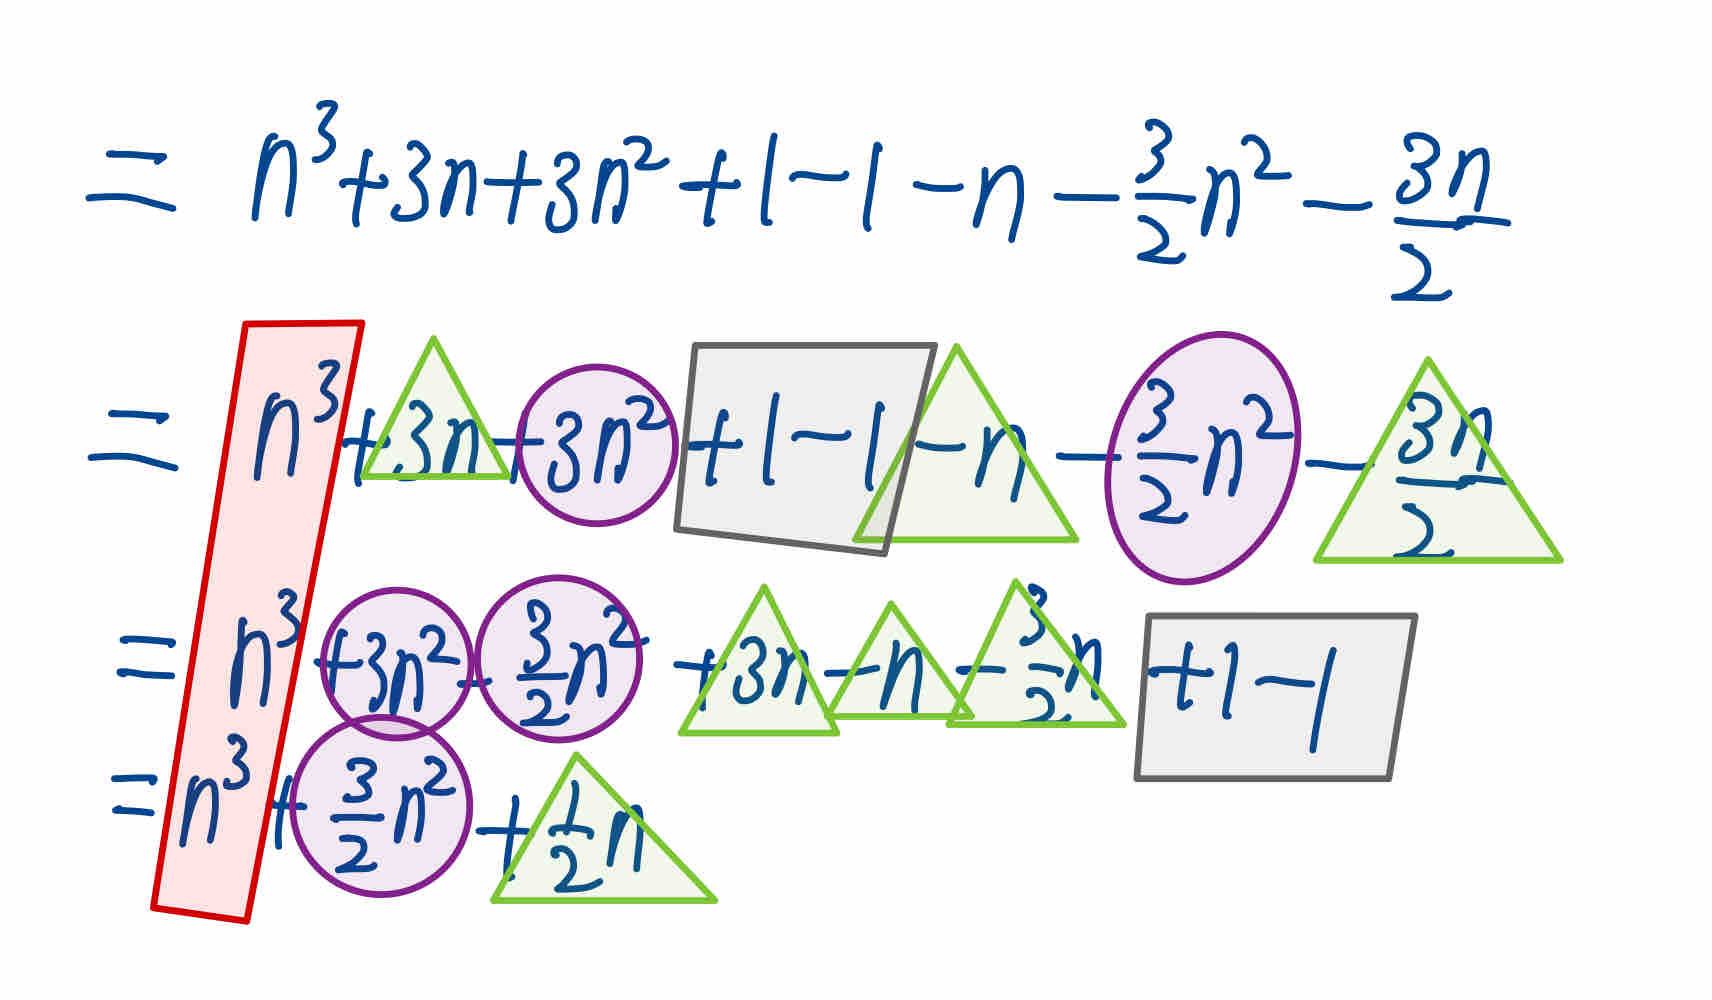 = n³ + 3n + 3n² + 1 - 1 - n - 3/2 n² - 3n/2
= n³ + 3n + 3n² + 1 - 1 - n - 3/2 n² - 3n/2
= n³ + 3n² - 3/2 n² + 3n - n - 3/2 n + 1 - 1
= n³ + 3/2 n² + 1/2 n